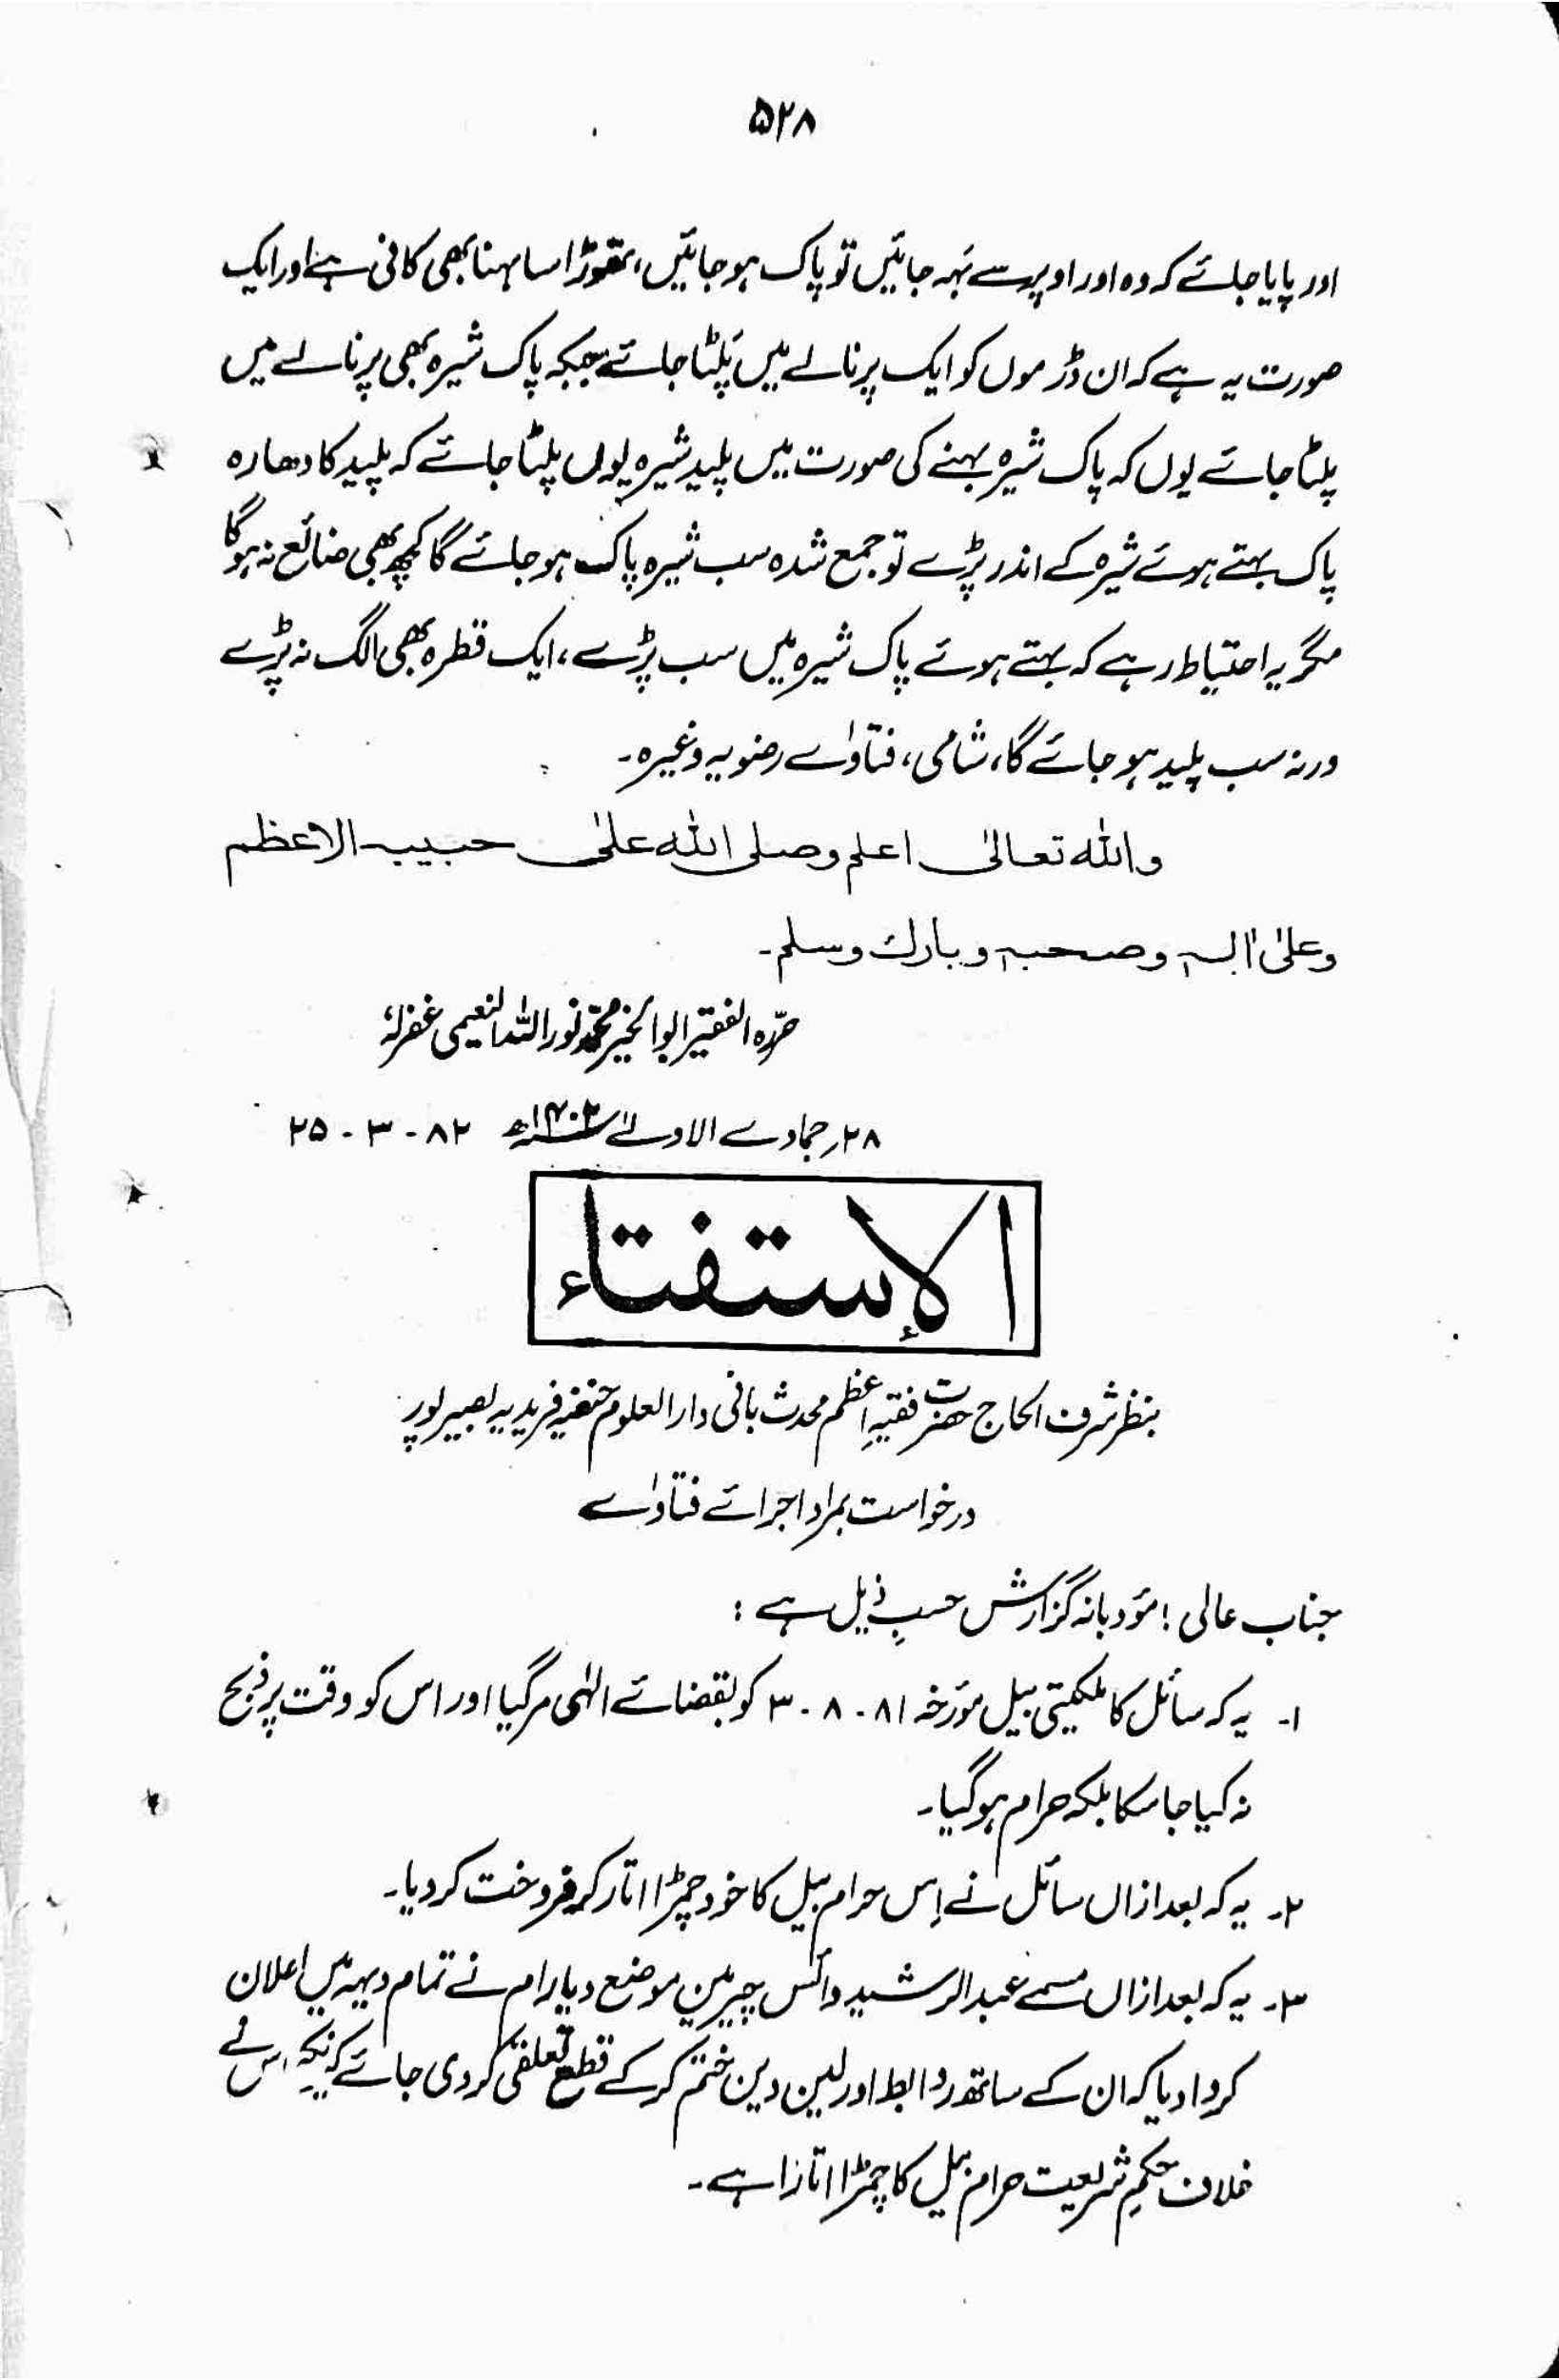 ۵۲۸
اور پایا جائے کہ وہ اور اوپر سے بَہہ جائیں تو پاک ہو جائیں، تھوڑا سا بہنا بھی کافی ہے اور ایک
صورت یہ ہے کہ ان ڈرموں کو ایک پرنالے میں پَلٹا جائے جبکہ پاک شیرہ بھی پرنالے میں
پلٹا جائے یوں کہ پاک شیرہ بہنے کی صورت میں پلید شیرہ یوں پلٹا جائے کہ پلید کا دھارہ
پاک بہتے ہوئے شیرہ کے اندر پڑے تو جمع شدہ سب شیرہ پاک ہو جائے گا کچھ بھی ضائع نہ ہوگا
مگر یہ احتیاط رہے کہ بہتے ہوئے پاک شیرہ میں سب پڑے، ایک قطرہ بھی الگ نہ پڑے
ورنہ سب پلید ہو جائے گا، شامی، فتاوٰے رضویہ وغیرہ۔
واللہ تعالیٰ اعلم وصلی اللہ علیٰ حبیبہ الاعظم
وعلیٰ اٰلہٖ وصحبہٖ وبارك وسلم۔
حرّرہ الفقیر ابوالخیر محمّد نوراللہ النعیمی غفرلہٗ
۲۸؍جمادے الاولےٰ ۱۴۰۲ھ ۸۲ - ۳ - ۲۵
الإستفتاء
بنظر شرف الحاج حضرت فقیہِ اعظم محدث بانی دارالعلوم حنفیہ فریدیہ بصیر پور
درخواست بمراد اجرائے فتاوٰے
جناب عالی! مؤدبانہ گزارش حسبِ ذیل ہے:
۱۔ یہ کہ سائل کا ملکیتی بیل مؤرخہ ۸۱ - ۸ - ۳ کو بقضائے الٰہی مر گیا اور اس کو وقت پر ذبح
نہ کیا جا سکا بلکہ حرام ہو گیا۔
۲۔ یہ کہ بعد ازاں سائل نے اِس حرام بیل کا خود چمڑا اتار کر فروخت کر دیا۔
۳۔ یہ کہ بعد ازاں مسمے عبدالرشید وائس چیرمین موضع دیارام نے تمام دیہہ میں اعلان
کروا دیا کہ ان کے ساتھ روابط اور لین دین ختم کر کے قطع تعلقی کر دی جائے کیونکہ اس نے
خلاف حکمِ شریعت حرام بیل کا چمڑا اتارا ہے۔